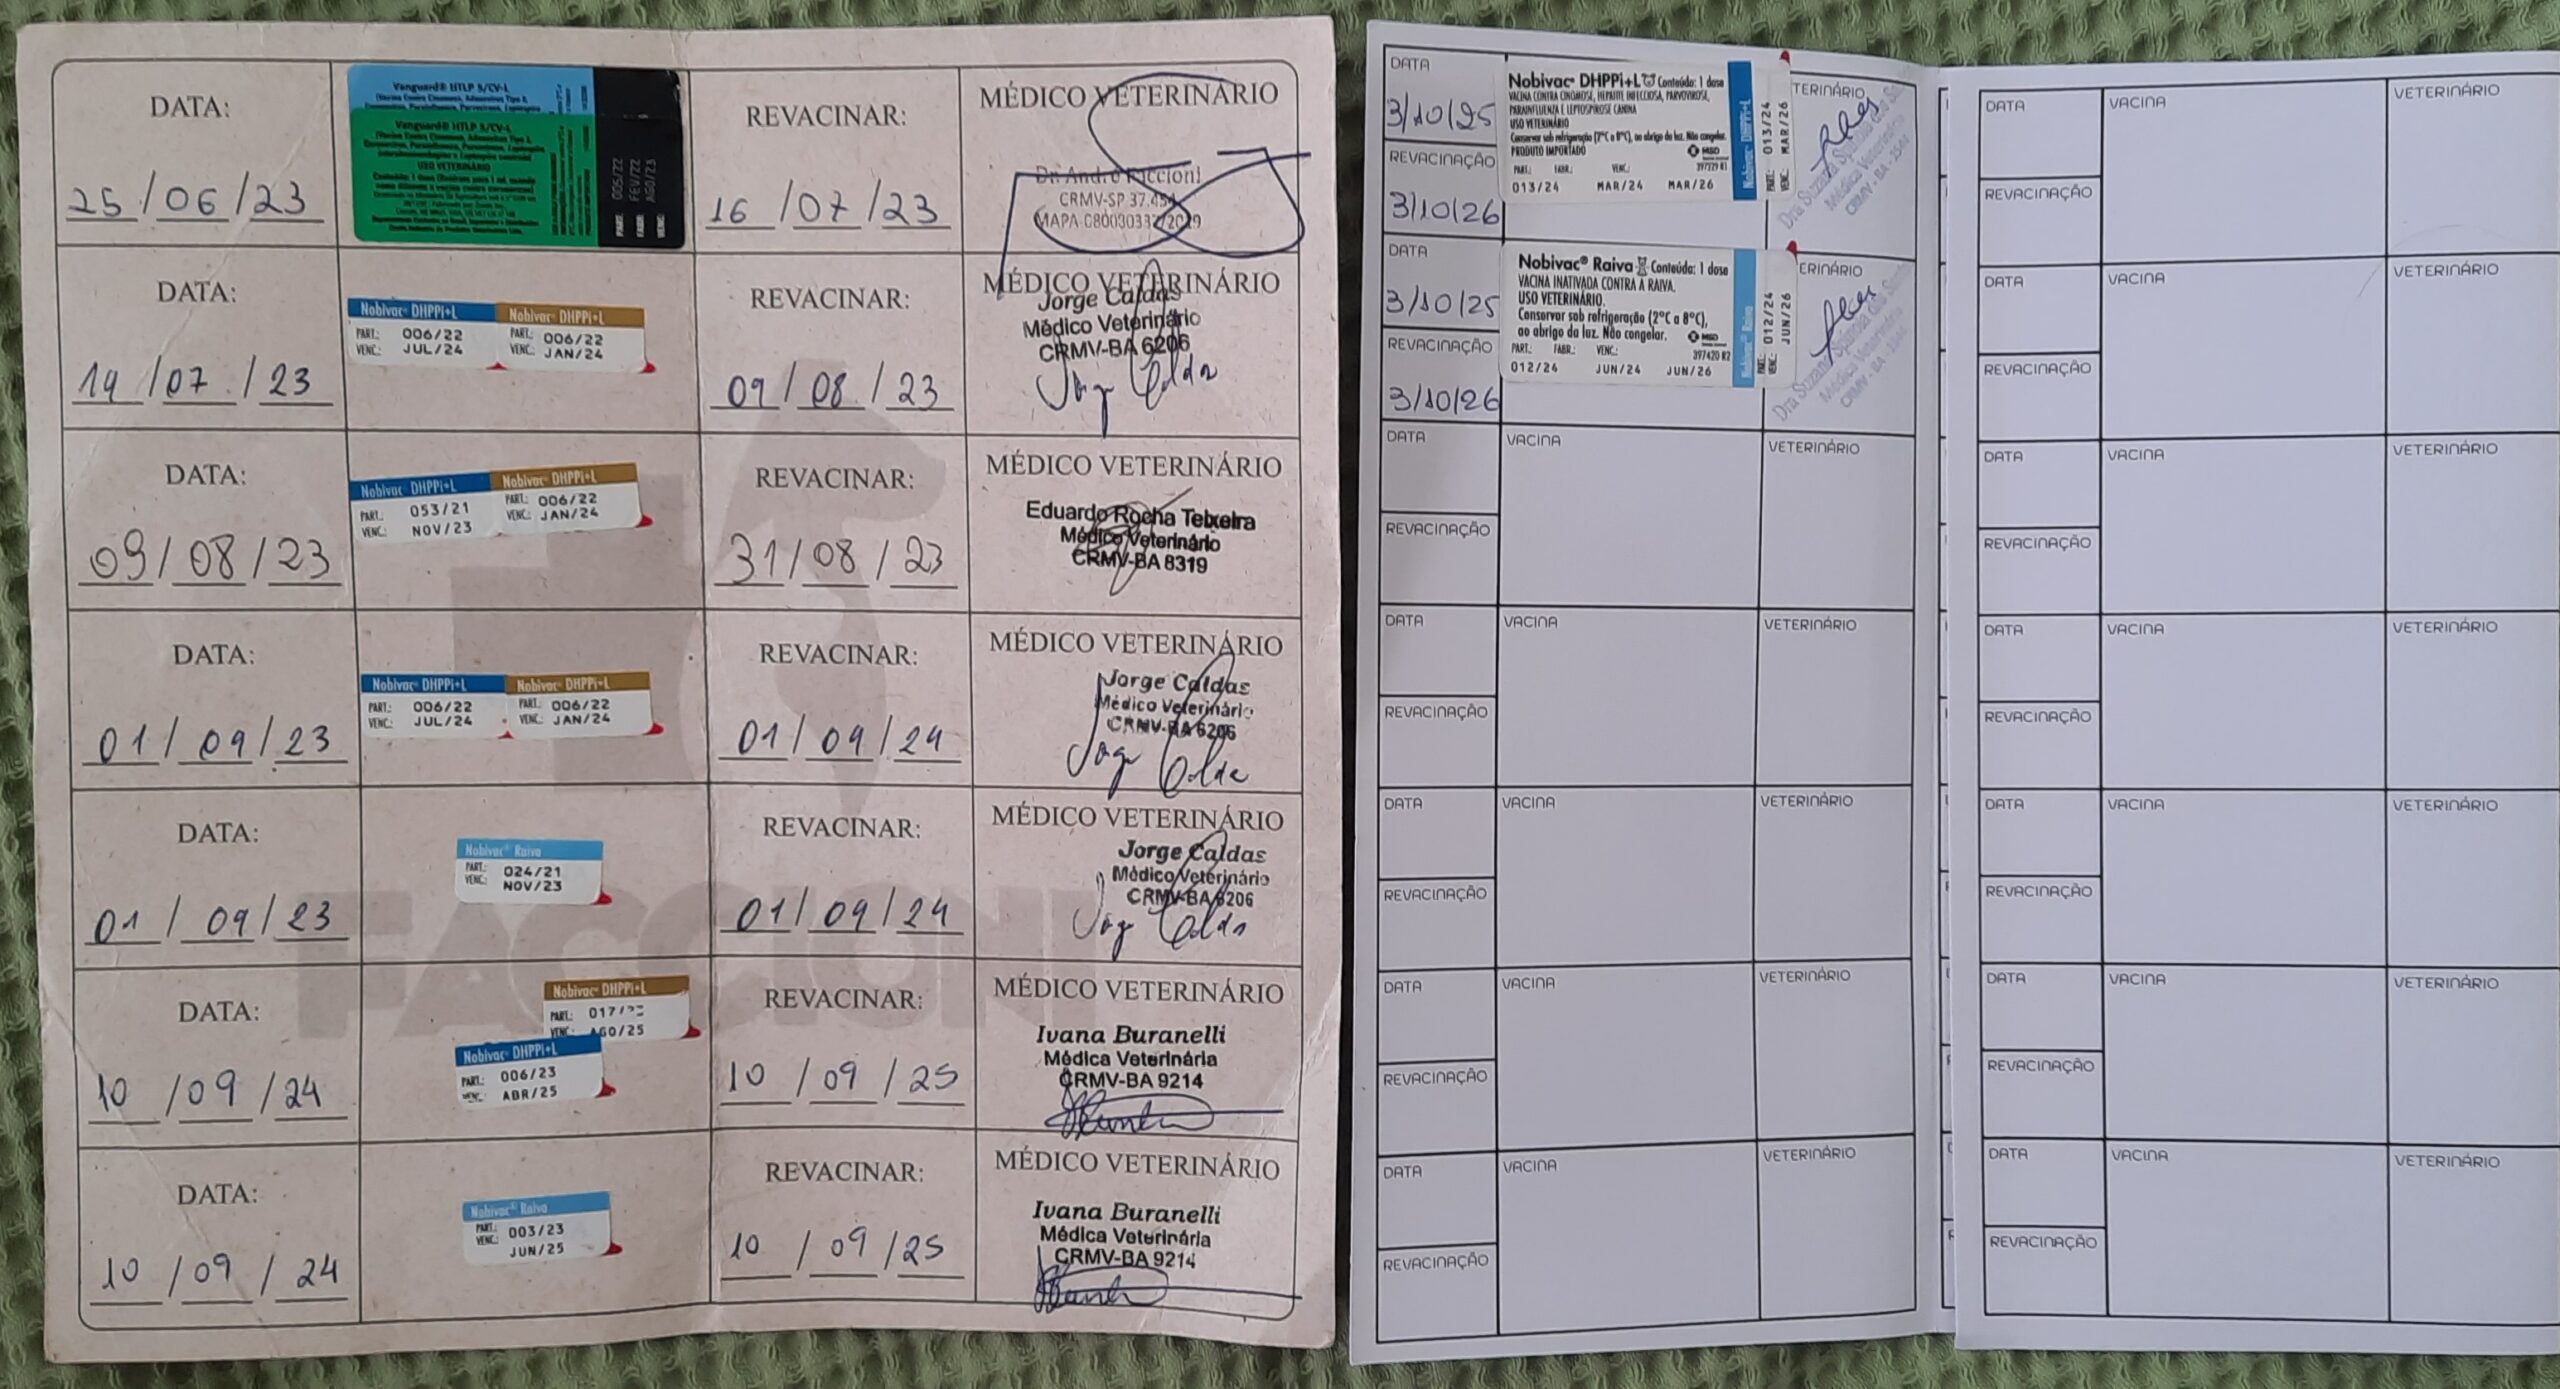 DATA:
25/06/23
Vanguard® HTLP 5/CV-L
Vanguard® HTLP 5/CV-L
USO VETERINÁRIO
PART: 005/22
FABR: FEV/22
VENC: AGO/23
REVACINAR:
16/07/23
MÉDICO VETERINÁRIO
Dr. André Faccioni
CRMV-SP 37.454
DATA:
19/07/23
Nobivac® DHPPi+L
PART.: 006/22
VENC: JUL/24
Nobivac® DHPPi+L
PART.: 006/22
VENC: JAN/24
REVACINAR:
09/08/23
MÉDICO VETERINÁRIO
Jorge Caldas
Médico Veterinário
CRMV-BA 6206
DATA:
09/08/23
Nobivac® DHPPi+L
PART.: 053/21
VENC: NOV/23
Nobivac® DHPPi+L
PART.: 006/22
VENC: JAN/24
REVACINAR:
31/08/23
MÉDICO VETERINÁRIO
Eduardo Rocha Teixeira
Médico Veterinário
CRMV-BA 8319
DATA:
01/09/23
Nobivac® DHPPi+L
PART.: 006/22
VENC: JUL/24
Nobivac® DHPPi+L
PART.: 006/22
VENC: JAN/24
REVACINAR:
01/09/24
MÉDICO VETERINÁRIO
Jorge Caldas
Médico Veterinário
CRMV-BA 6206
DATA:
01/09/23
Nobivac® Raiva
PART.: 024/21
VENC.: NOV/23
REVACINAR:
01/09/24
MÉDICO VETERINÁRIO
Jorge Caldas
Médico Veterinário
CRMV-BA 6206
FACCIONI
DATA:
10/09/24
Nobivac® DHPPi+L
PART.:
VENC: AGO/25
Nobivac® DHPPi+L
PART.: 006/23
VENC: ABR/25
REVACINAR:
10/09/25
MÉDICO VETERINÁRIO
Ivana Buranelli
Médica Veterinária
CRMV-BA 9214
DATA:
10/09/24
Nobivac® Raiva
PART.: 003/23
VENC.: JUN/25
REVACINAR:
10/09/25
MÉDICO VETERINÁRIO
Ivana Buranelli
Médica Veterinária
CRMV-BA 9214
DATA
3/10/25
REVACINAÇÃO
3/10/26
Nobivac® DHPPi+L Conteúdo: 1 dose
VACINA CONTRA CINOMOSE, HEPATITE INFECCIOSA, PARVOVIROSE,
PARAINFLUENZA E LEPTOSPIROSE CANINA
USO VETERINÁRIO
Conservar sob refrigeração (2°C a 8°C), ao abrigo da luz. Não congelar.
PRODUTO IMPORTADO
MSD
PART.: FABR.: VENC.:
013/24 MAR/24 MAR/26
Nobivac® DHPPi+L
PART.: 013/24
VENC: MAR/26
TERINÁRIO
Médica Veterinária
CRMV - BA - 1540
DATA
3/10/25
REVACINAÇÃO
3/10/26
Nobivac® Raiva Conteúdo: 1 dose
VACINA INATIVADA CONTRA A RAIVA.
USO VETERINÁRIO.
Conservar sob refrigeração (2°C a 8°C),
ao abrigo da luz. Não congelar.
MSD
PART.: FABR.: VENC.: 397420 R2
012/24 JUN/24 JUN/26
Nobivac® Raiva
PART.: 012/24
VENC: JUN/26
ERINÁRIO
Médica Veterinária
CRMV - BA - 1540
DATA VACINA VETERINÁRIO
REVACINAÇÃO
DATA VACINA VETERINÁRIO
REVACINAÇÃO
DATA VACINA VETERINÁRIO
REVACINAÇÃO
DATA VACINA VETERINÁRIO
REVACINAÇÃO
DATA VACINA VETERINÁRIO
REVACINAÇÃO
DATA VACINA VETERINÁRIO
REVACINAÇÃO
DATA VACINA VETERINÁRIO
REVACINAÇÃO
DATA VACINA VETERINÁRIO
REVACINAÇÃO
DATA VACINA VETERINÁRIO
REVACINAÇÃO
DATA VACINA VETERINÁRIO
REVACINAÇÃO
DATA VACINA VETERINÁRIO
REVACINAÇÃO
DATA VACINA VETERINÁRIO
REVACINAÇÃO